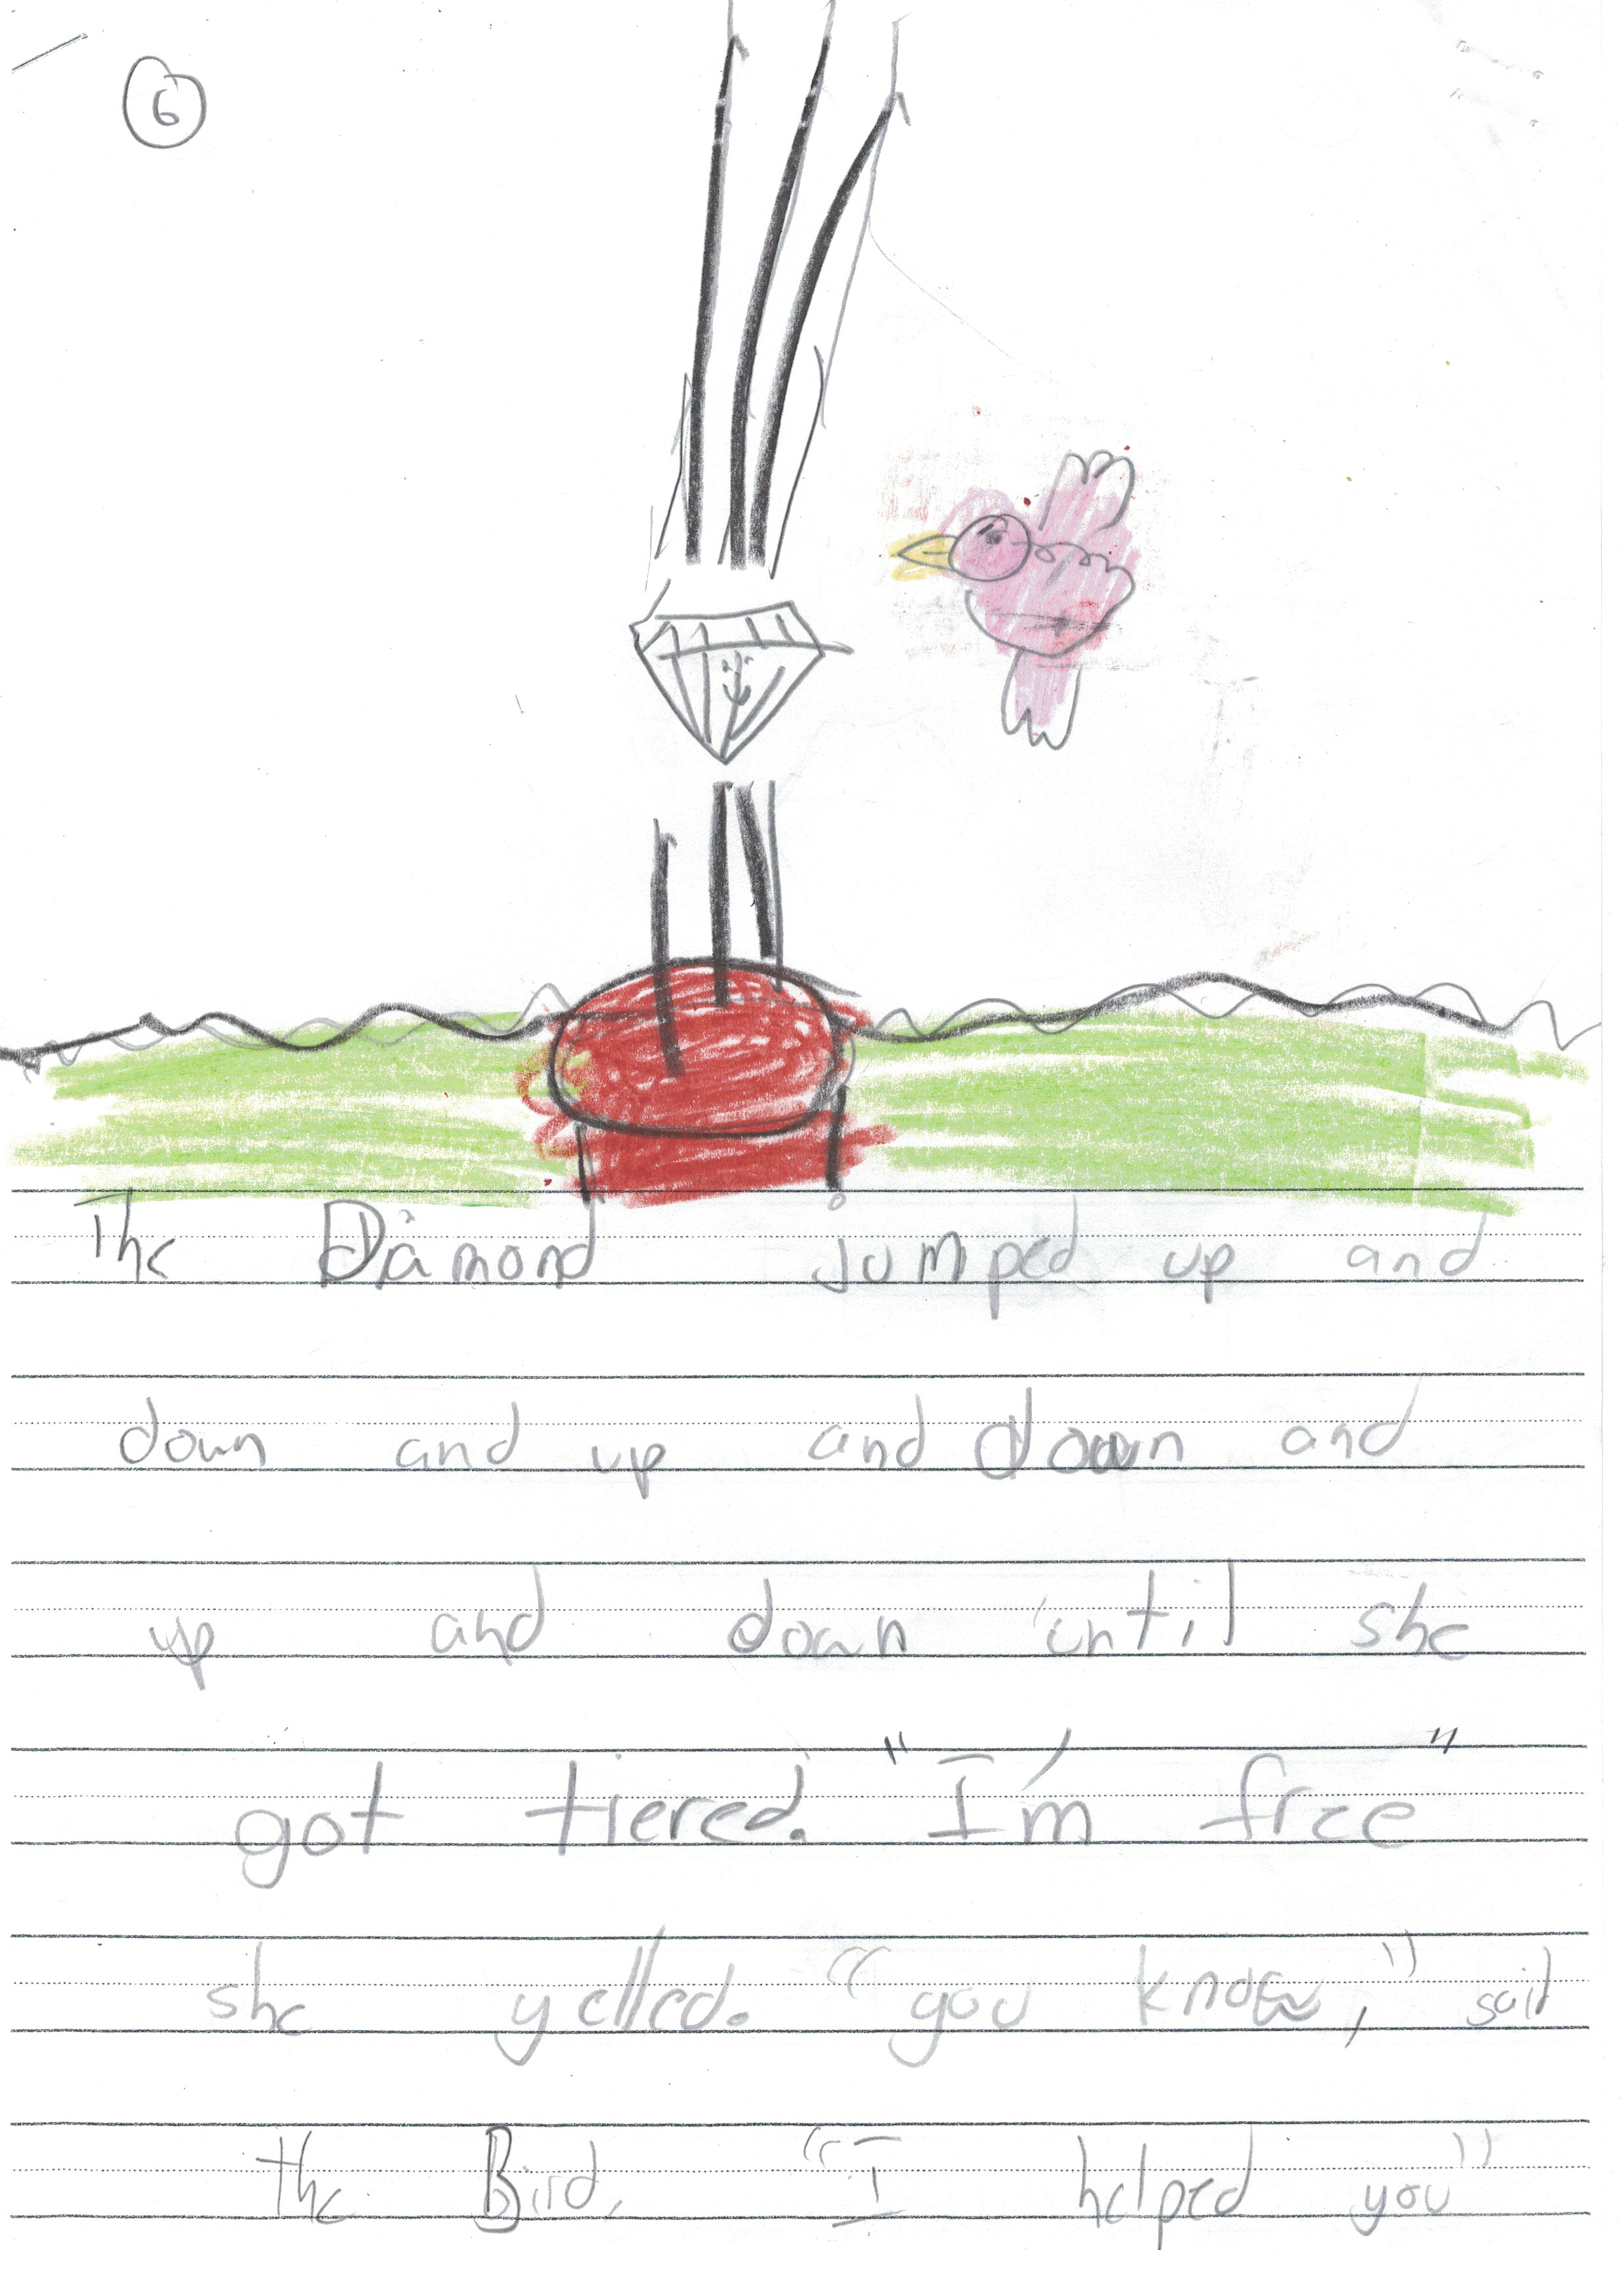 6
The Diamond jumped up and
down and up and down and
up and down until she
got tiered. "I'm free"
she yelled. "you know," said
the Bird, "I helped you"